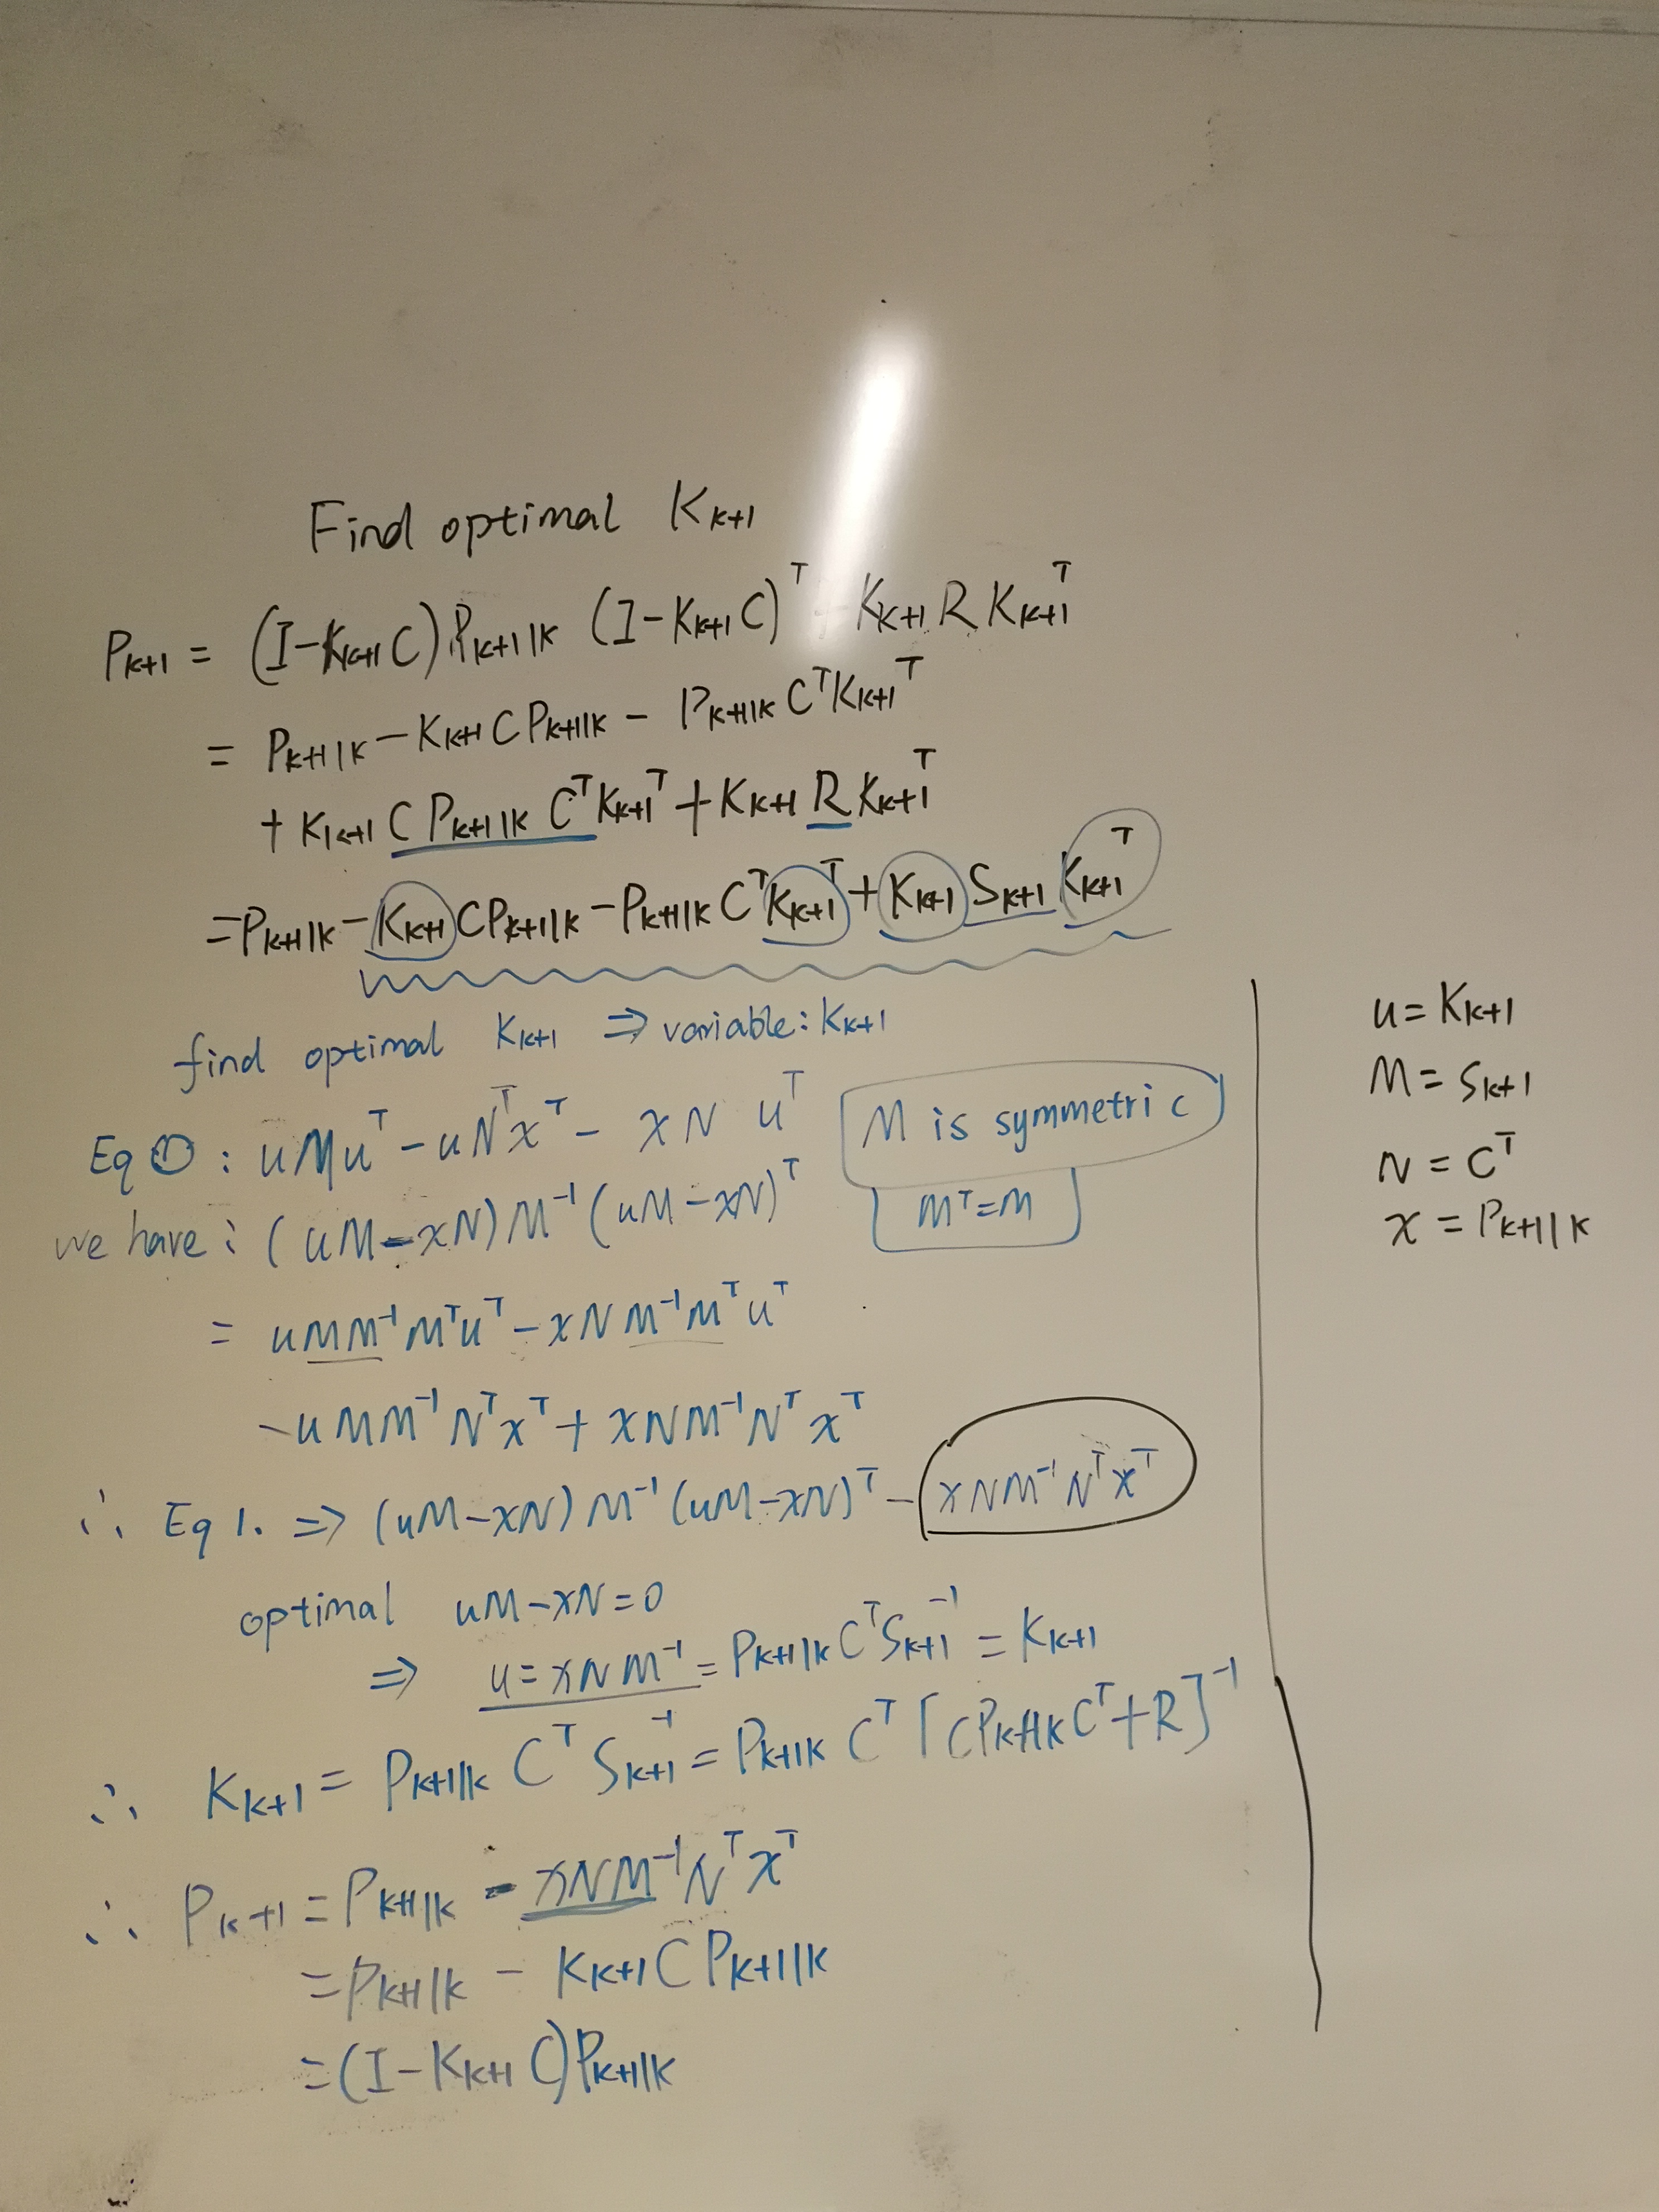 Find optimal K_{k+1}
P_{k+1} = (I-K_{k+1}C)P_{k+1|k} (I-K_{k+1}C)^T + K_{k+1} R K_{k+1}^T
= P_{k+1|k} - K_{k+1} C P_{k+1|k} - P_{k+1|k} C^T K_{k+1}^T
+ K_{k+1} C P_{k+1|k} C^T K_{k+1}^T + K_{k+1} R K_{k+1}^T
= P_{k+1|k} - K_{k+1} C P_{k+1|k} - P_{k+1|k} C^T K_{k+1}^T + K_{k+1} S_{k+1} K_{k+1}^T
find optimal K_{k+1} ⇒ variable: K_{k+1}
Eq ①: uMu^T - uN^Tx^T - xN u^T
M is symmetric
M^T=M
we have: (uM-xN)M^{-1}(uM-xN)^T
= uMM^{-1}M^Tu^T - xNM^{-1}M^Tu^T
-uMM^{-1}N^Tx^T + xNM^{-1}N^Tx^T
∴ Eq 1. ⇒ (uM-xN)M^{-1}(uM-xN)^T - xNM^{-1}N^Tx^T
optimal uM-xN=0
⇒ u=xNM^{-1} = P_{k+1|k}C^TS_{k+1}^{-1} = K_{k+1}
∴ K_{k+1} = P_{k+1|k} C^T S_{k+1}^{-1} = P_{k+1|k} C^T [CP_{k+1|k}C^T+R]^{-1}
∴ P_{k+1} = P_{k+1|k} - xNM^{-1}N^Tx^T
= P_{k+1|k} - K_{k+1}CP_{k+1|k}
= (I-K_{k+1}C)P_{k+1|k}
u = K_{k+1}
M = S_{k+1}
N = C^T
x = P_{k+1|k}